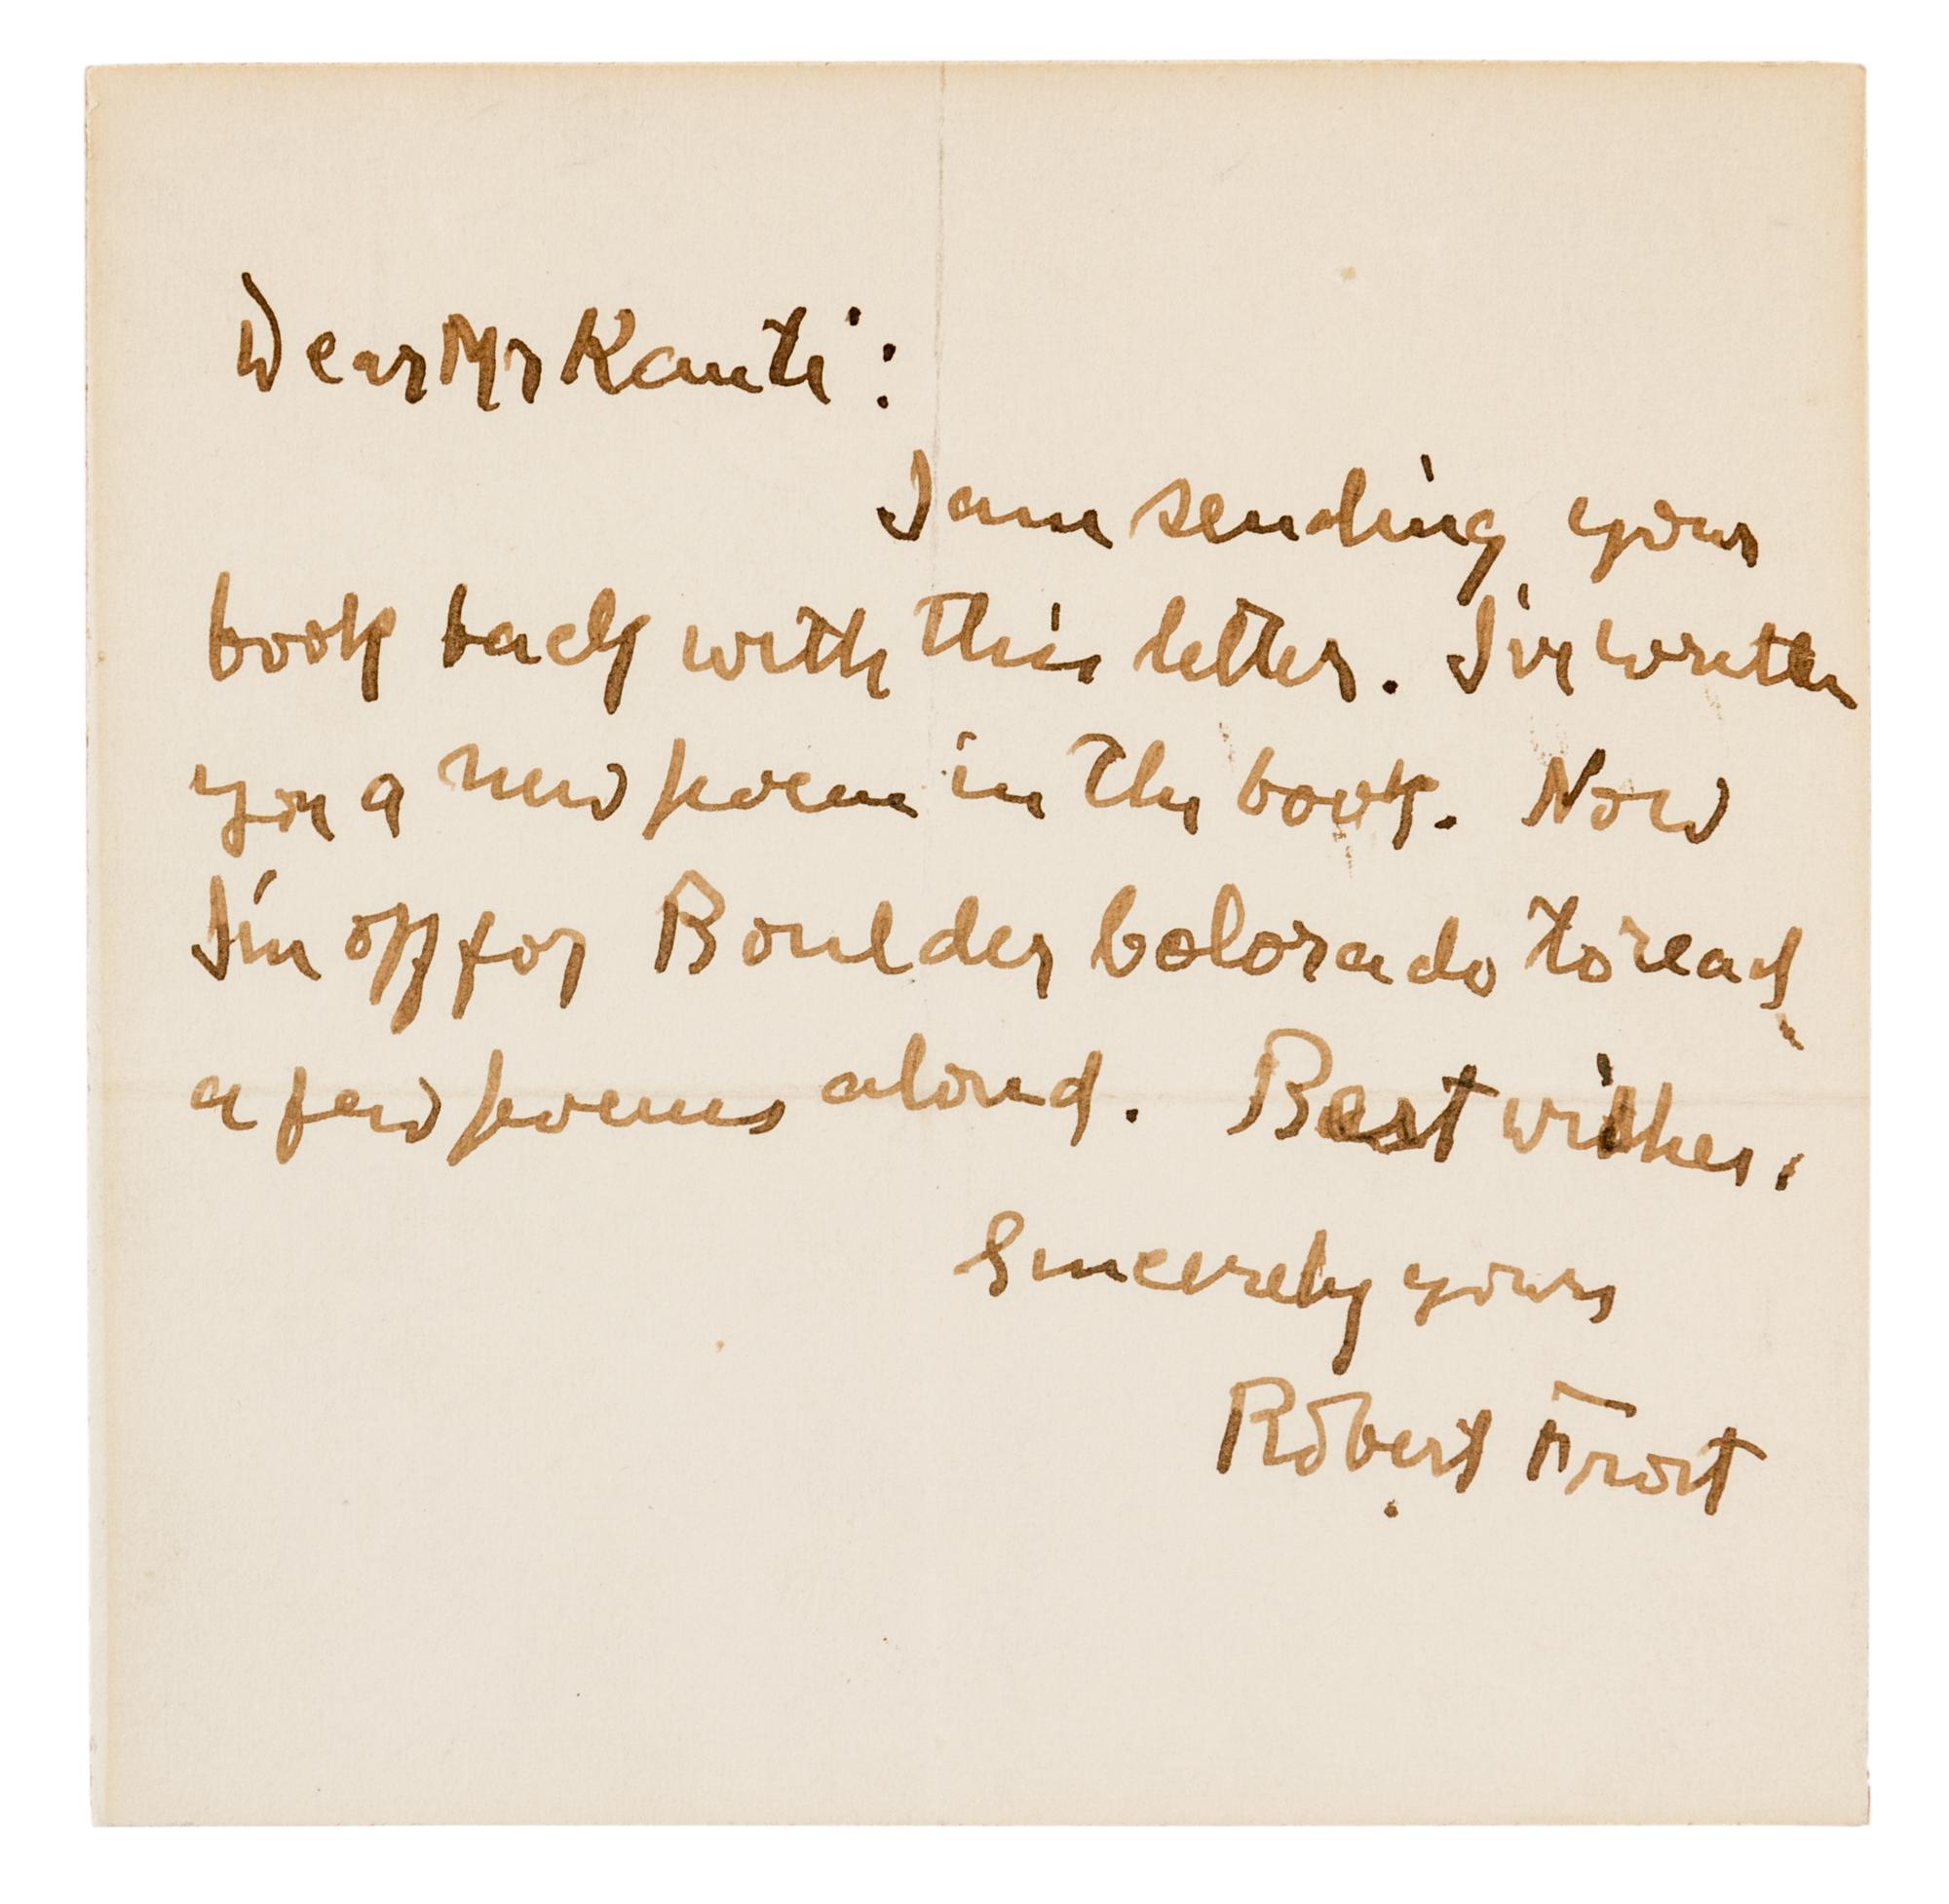 Dear Mr Kanti:
I am sending your
book back with this letter. I've written
you a new poem in the book. Now
I'm off for Boulder Colorado to read
a few poems aloud. Best wishes.
Sincerely yours
Robert Frost